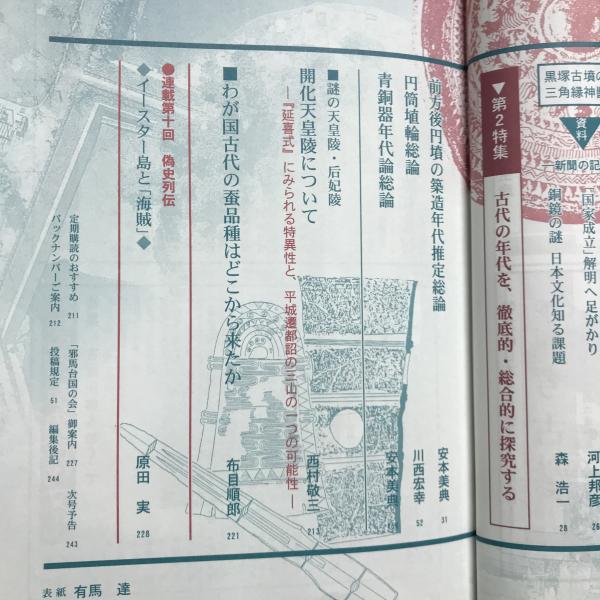 黒塚古墳の
三角縁神
資料
―新聞の記
「国家成立」解明へ足がかり
河上邦彦
26
銅鏡の謎 日本文化知る課題
森 浩一
28
▼第2特集 古代の年代を、徹底的・総合的に探究する
前方後円墳の築造年代推定総論
安本美典
31
円筒埴輪総論
川西宏幸
52
青銅器年代論総論
安本美典
■謎の天皇陵・后妃陵
開化天皇陵について
―『延喜式』にみられる特異性と、平城遷都詔の三山の一つの可能性―
西村敬三
213
■わが国古代の蚕品種はどこから来たか
布目順郎
221
●連載第十回 偽史列伝
◆イースター島と「海賊」◆
原田 実
228
定期購読のおすすめ 211
「邪馬台国の会」御案内 227
次号予告 243
バックナンバーご案内 212
投稿規定 51
編集後記 244
表紙 有馬 達